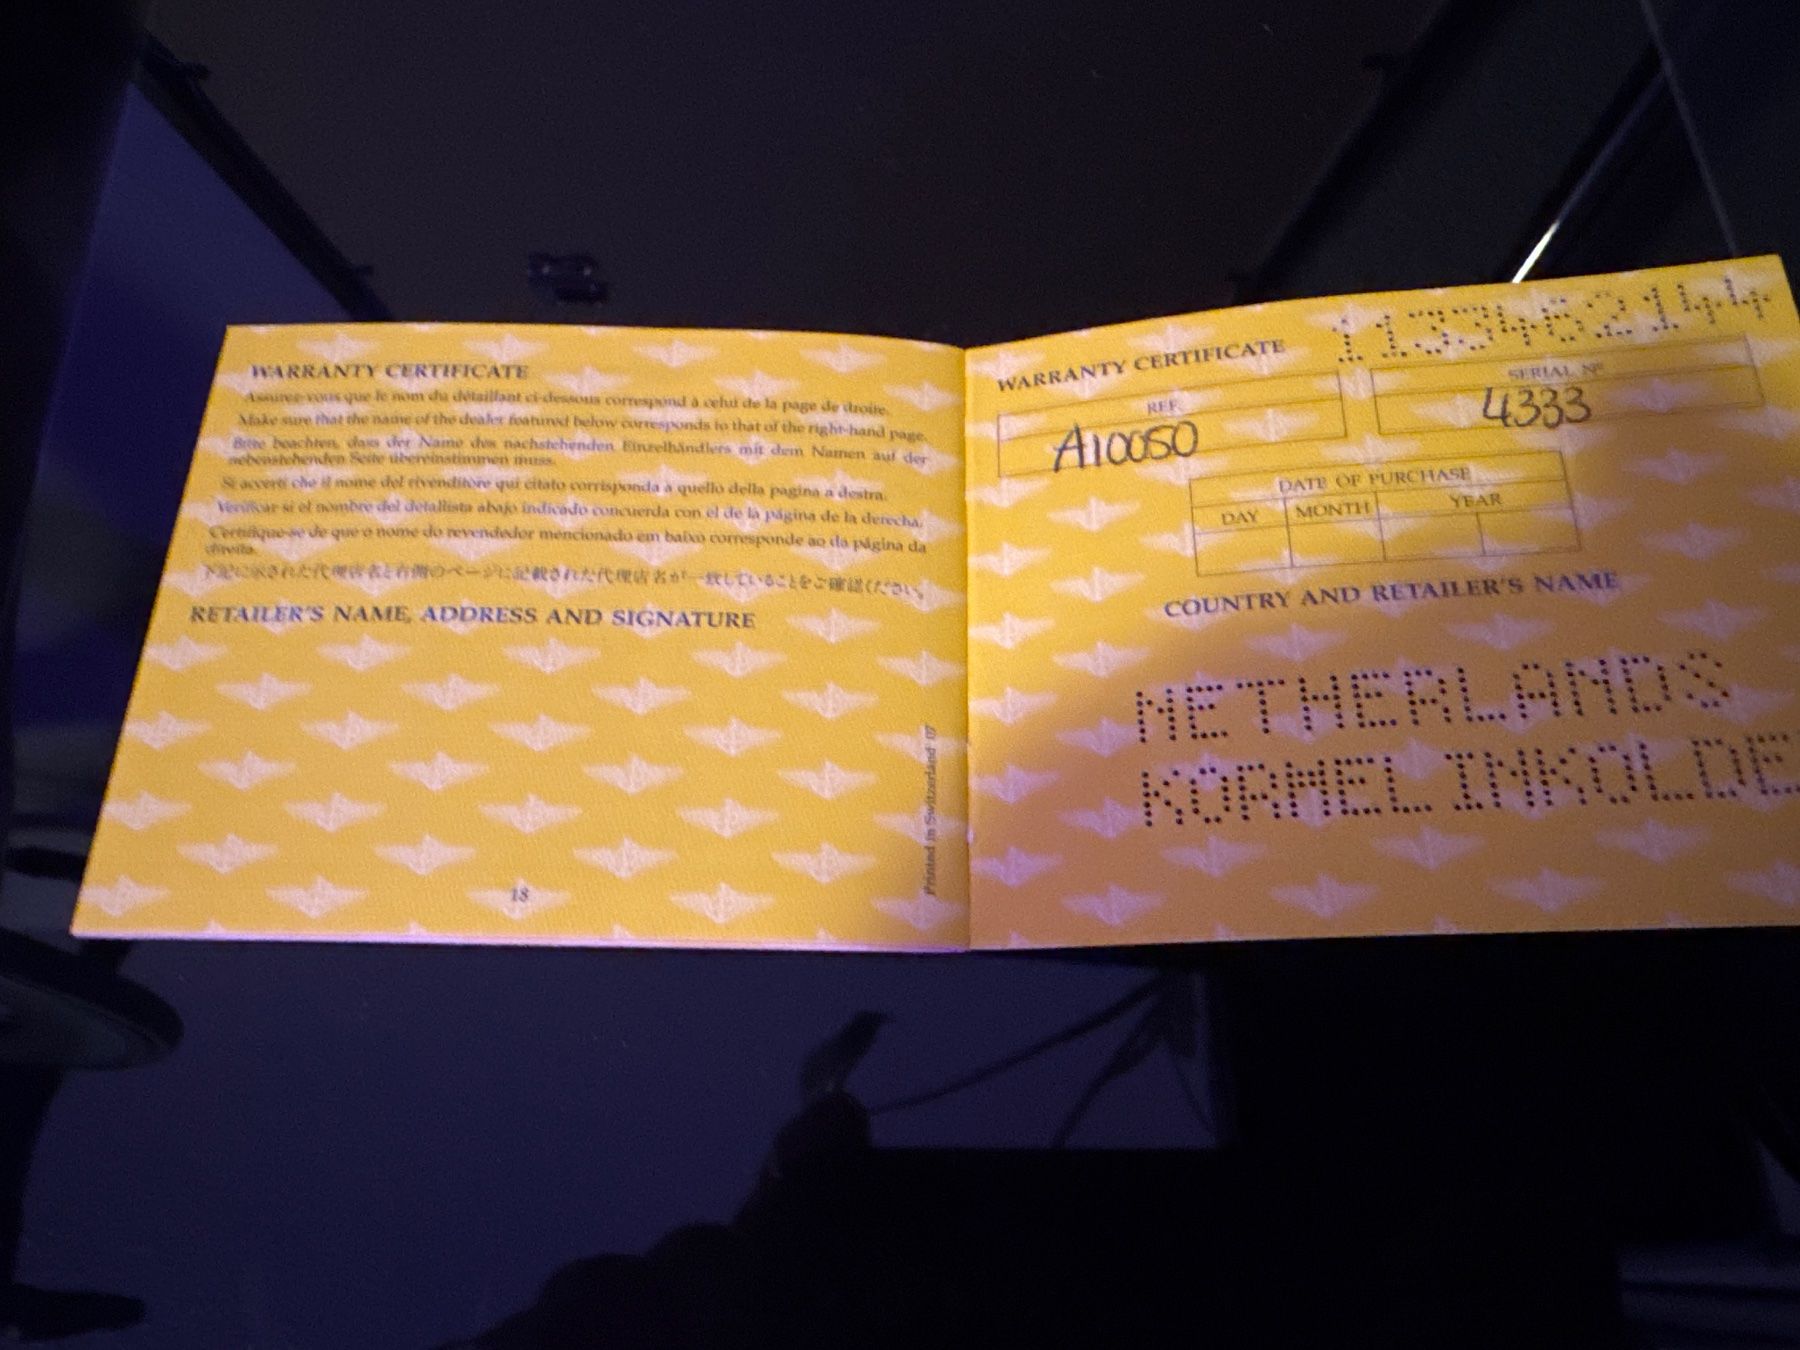 WARRANTY CERTIFICATE
Assurez-vous que le nom du détaillant ci-dessous correspond à celui de la page de droite.
Make sure that the name of the dealer featured below corresponds to that of the right-hand page.
Bitte beachten, dass der Name des nachstehenden Einzelhändlers mit dem Namen auf der
nebenstehenden Seite übereinstimmen muss.
Si accerti che il nome del rivenditore qui citato corrisponda a quello della pagina a destra.
Verificar si el nombre del detallista abajo indicado concuerda con el de la página de la derecha.
Certifique-se de que o nome do revendedor mencionado em baixo corresponde ao da página da
direita.
下記に示された代理店名と右側のページに記載された代理店名が一致していることをご確認ください。
RETAILER'S NAME, ADDRESS AND SIGNATURE
Printed in Switzerland 07
18
1133462144
WARRANTY CERTIFICATE
REF.
A10050
SERIAL N°
4333
DATE OF PURCHASE
DAY MONTH YEAR
COUNTRY AND RETAILER'S NAME
NETHERLANDS
KORMELINKOLDE